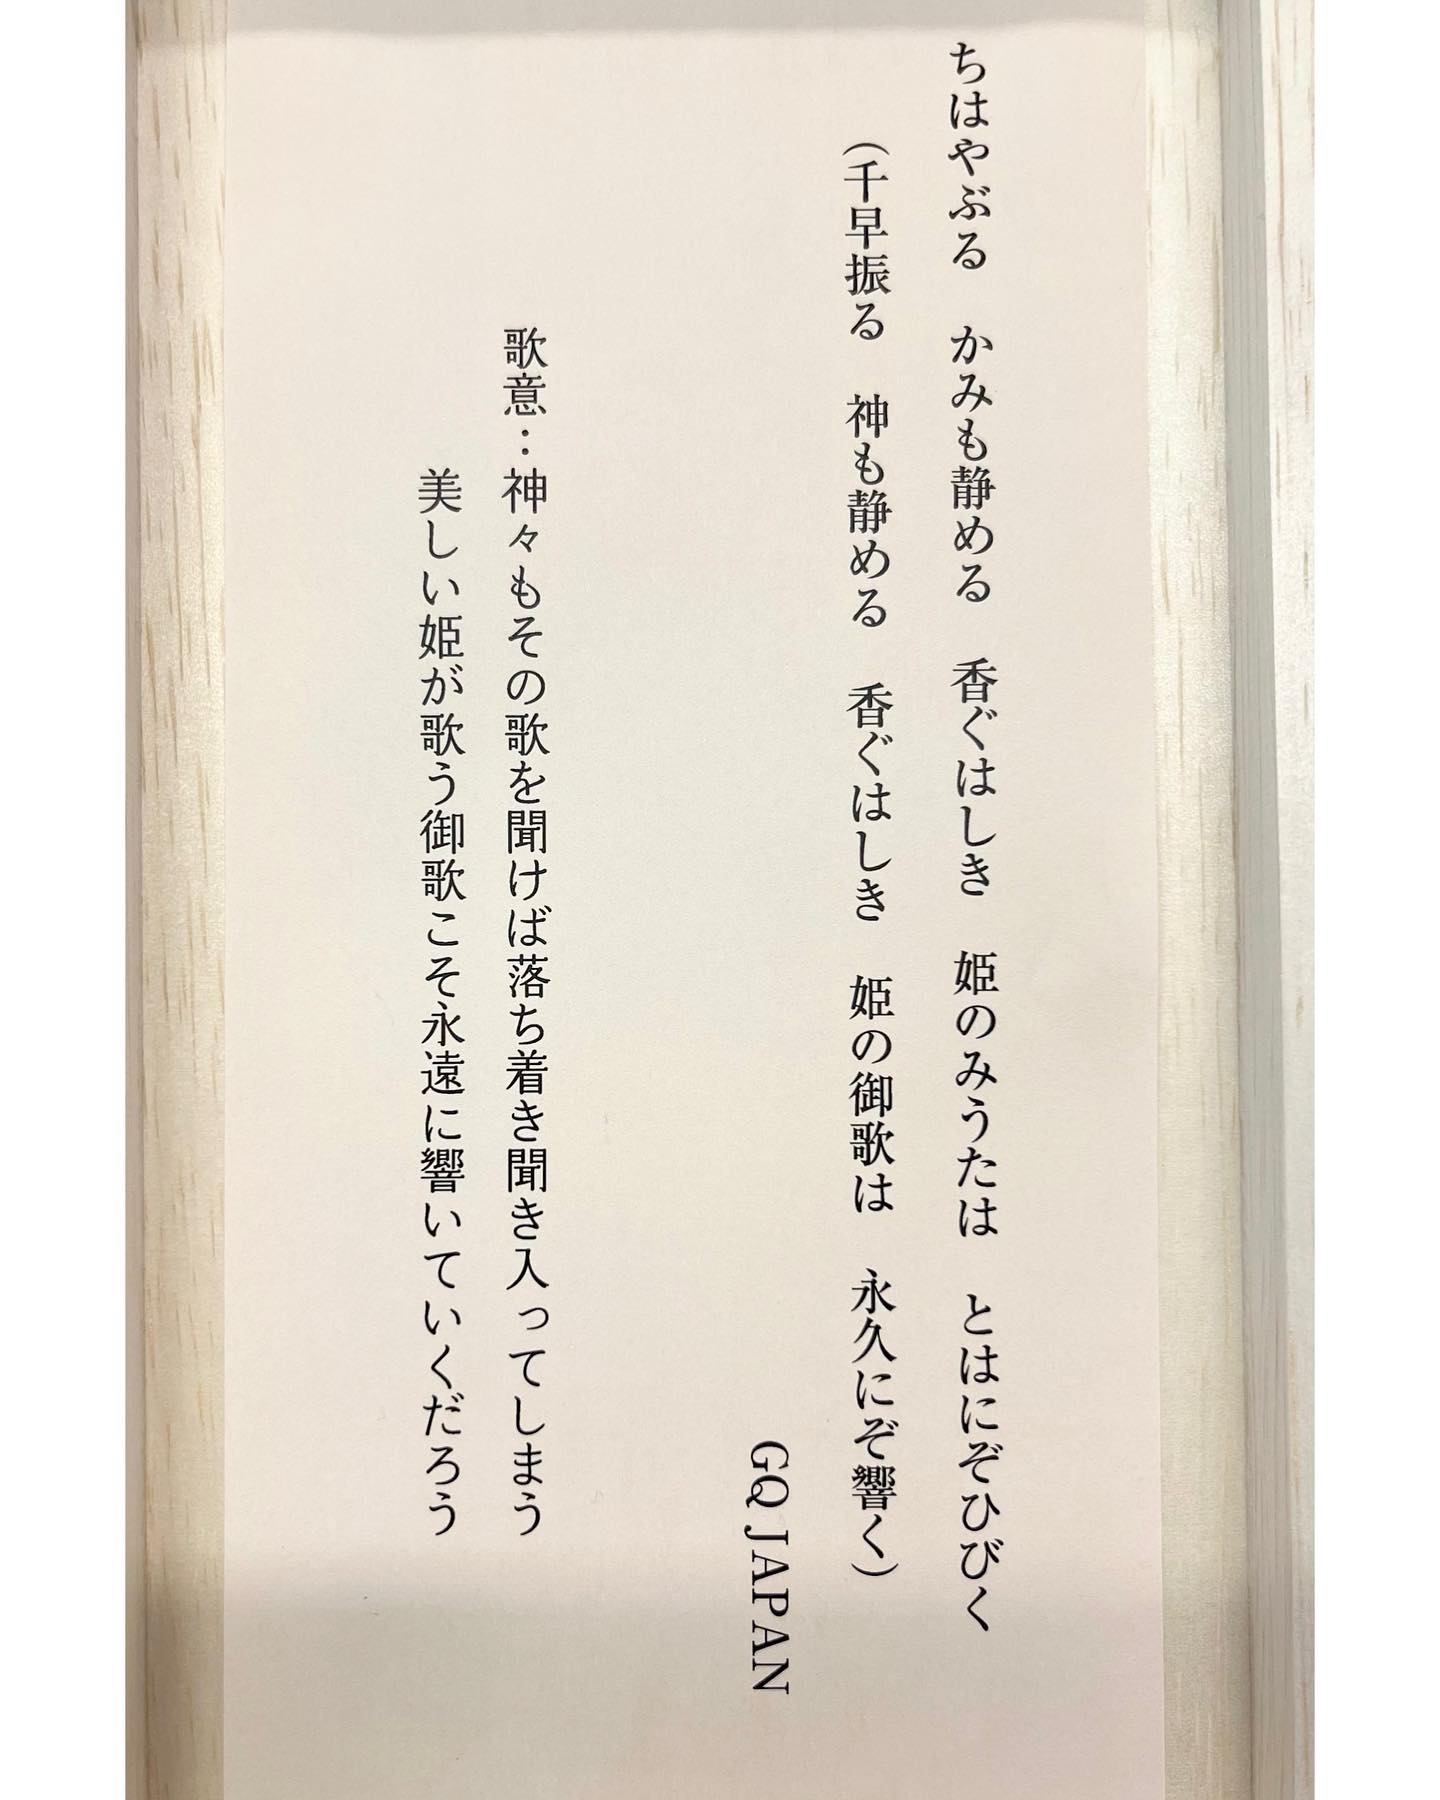 ちはやぶる　かみも静める　香ぐはしき　姫のみうたは　とはにぞひびく
（千早振る　神も静める　香ぐはしき　姫の御歌は　永久にぞ響く）
GQ JAPAN
歌意：神々もその歌を聞けば落ち着き聞き入ってしまう
美しい姫が歌う御歌こそ永遠に響いていくだろう